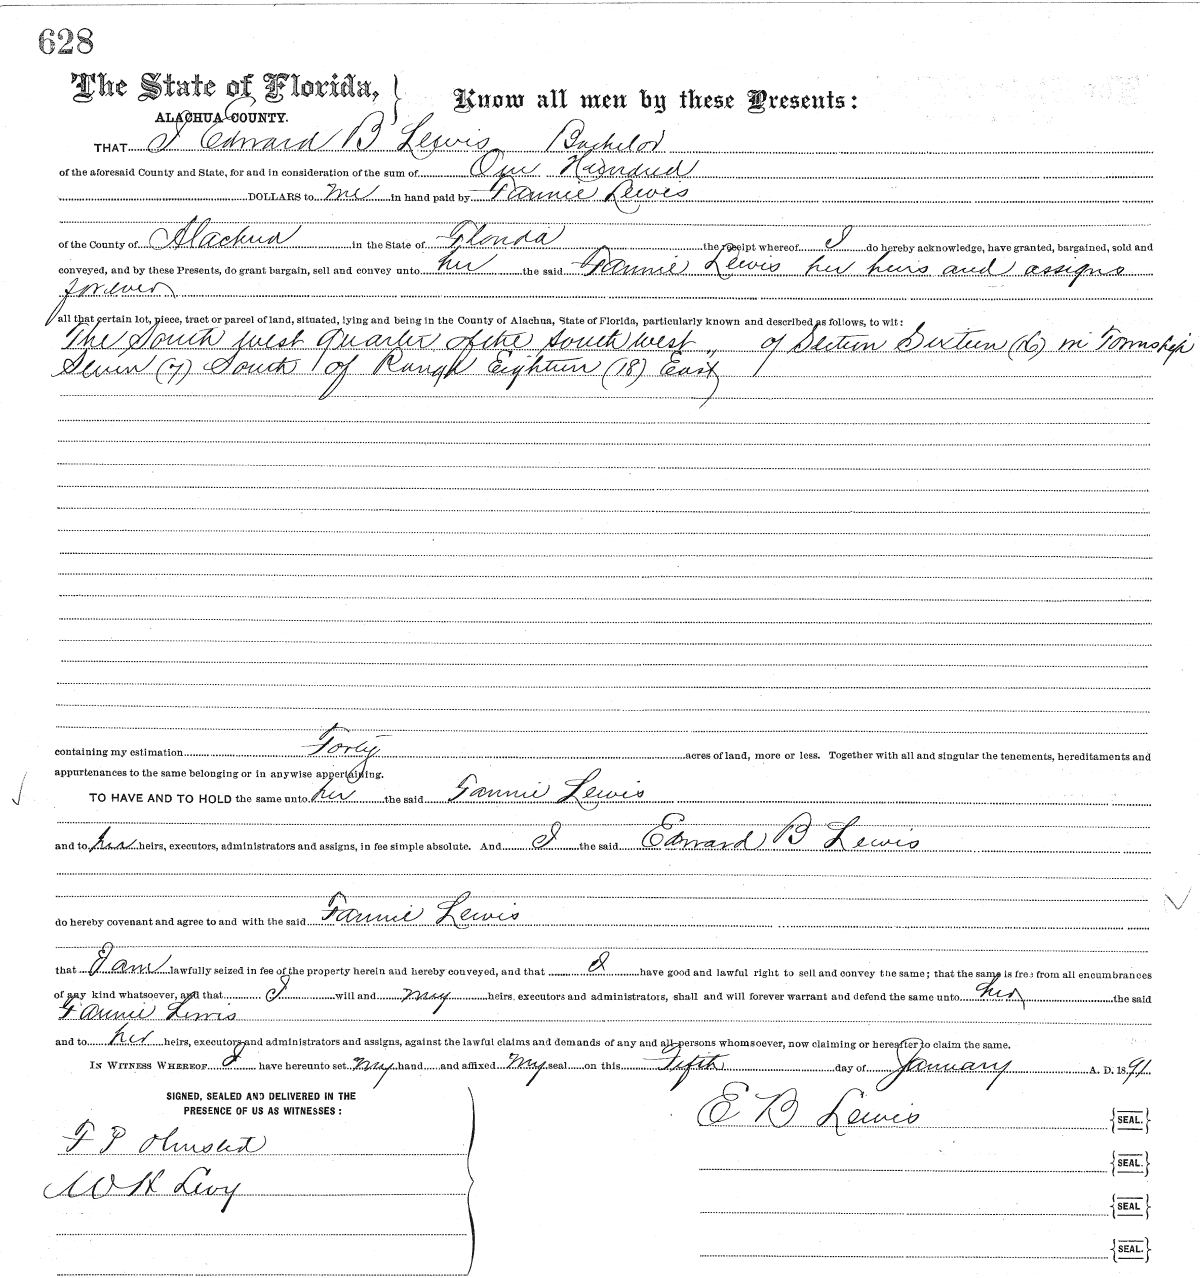 628
The State of Florida,
ALACHUA COUNTY.
Know all men by these Presents:
THAT I Edward B Lewis Bachelor
of the aforesaid County and State, for and in consideration of the sum of One Hundred
DOLLARS to me in hand paid by Fannie Lewis
of the County of Alachua in the State of Florida the receipt whereof I do hereby acknowledge, have granted, bargained, sold and
conveyed, and by these Presents, do grant bargain, sell and convey unto her the said Fannie Lewis her heirs and assigns
forever
all that certain lot, piece, tract or parcel of land, situated, lying and being in the County of Alachua, State of Florida, particularly known and described as follows, to wit:
The South west Quarter of the South west " of Section Sixteen (16) in Township
Seven (7) South of Range Eighteen (18) East
containing my estimation Forty acres of land, more or less. Together with all and singular the tenements, hereditaments and
appurtenances to the same belonging or in anywise appertaining.
TO HAVE AND TO HOLD the same unto her the said Fannie Lewis
and to her heirs, executors, administrators and assigns, in fee simple absolute. And I the said Edward B Lewis
do hereby covenant and agree to and with the said Fannie Lewis
that I am lawfully seized in fee of the property herein and hereby conveyed, and that I have good and lawful right to sell and convey the same; that the same is free from all encumbrances
of any kind whatsoever, and that I will and my heirs, executors and administrators, shall and will forever warrant and defend the same unto her the said
Fannie Lewis
and to her heirs, executors and administrators and assigns, against the lawful claims and demands of any and all persons whomsoever, now claiming or hereafter to claim the same.
IN WITNESS WHEREOF I have hereunto set my hand and affixed my seal on this Fifth day of January A. D. 1891.
SIGNED, SEALED AND DELIVERED IN THE
PRESENCE OF US AS WITNESSES:
E B Lewis SEAL.
F P Olmsted
SEAL.
W H Levy
SEAL
SEAL.